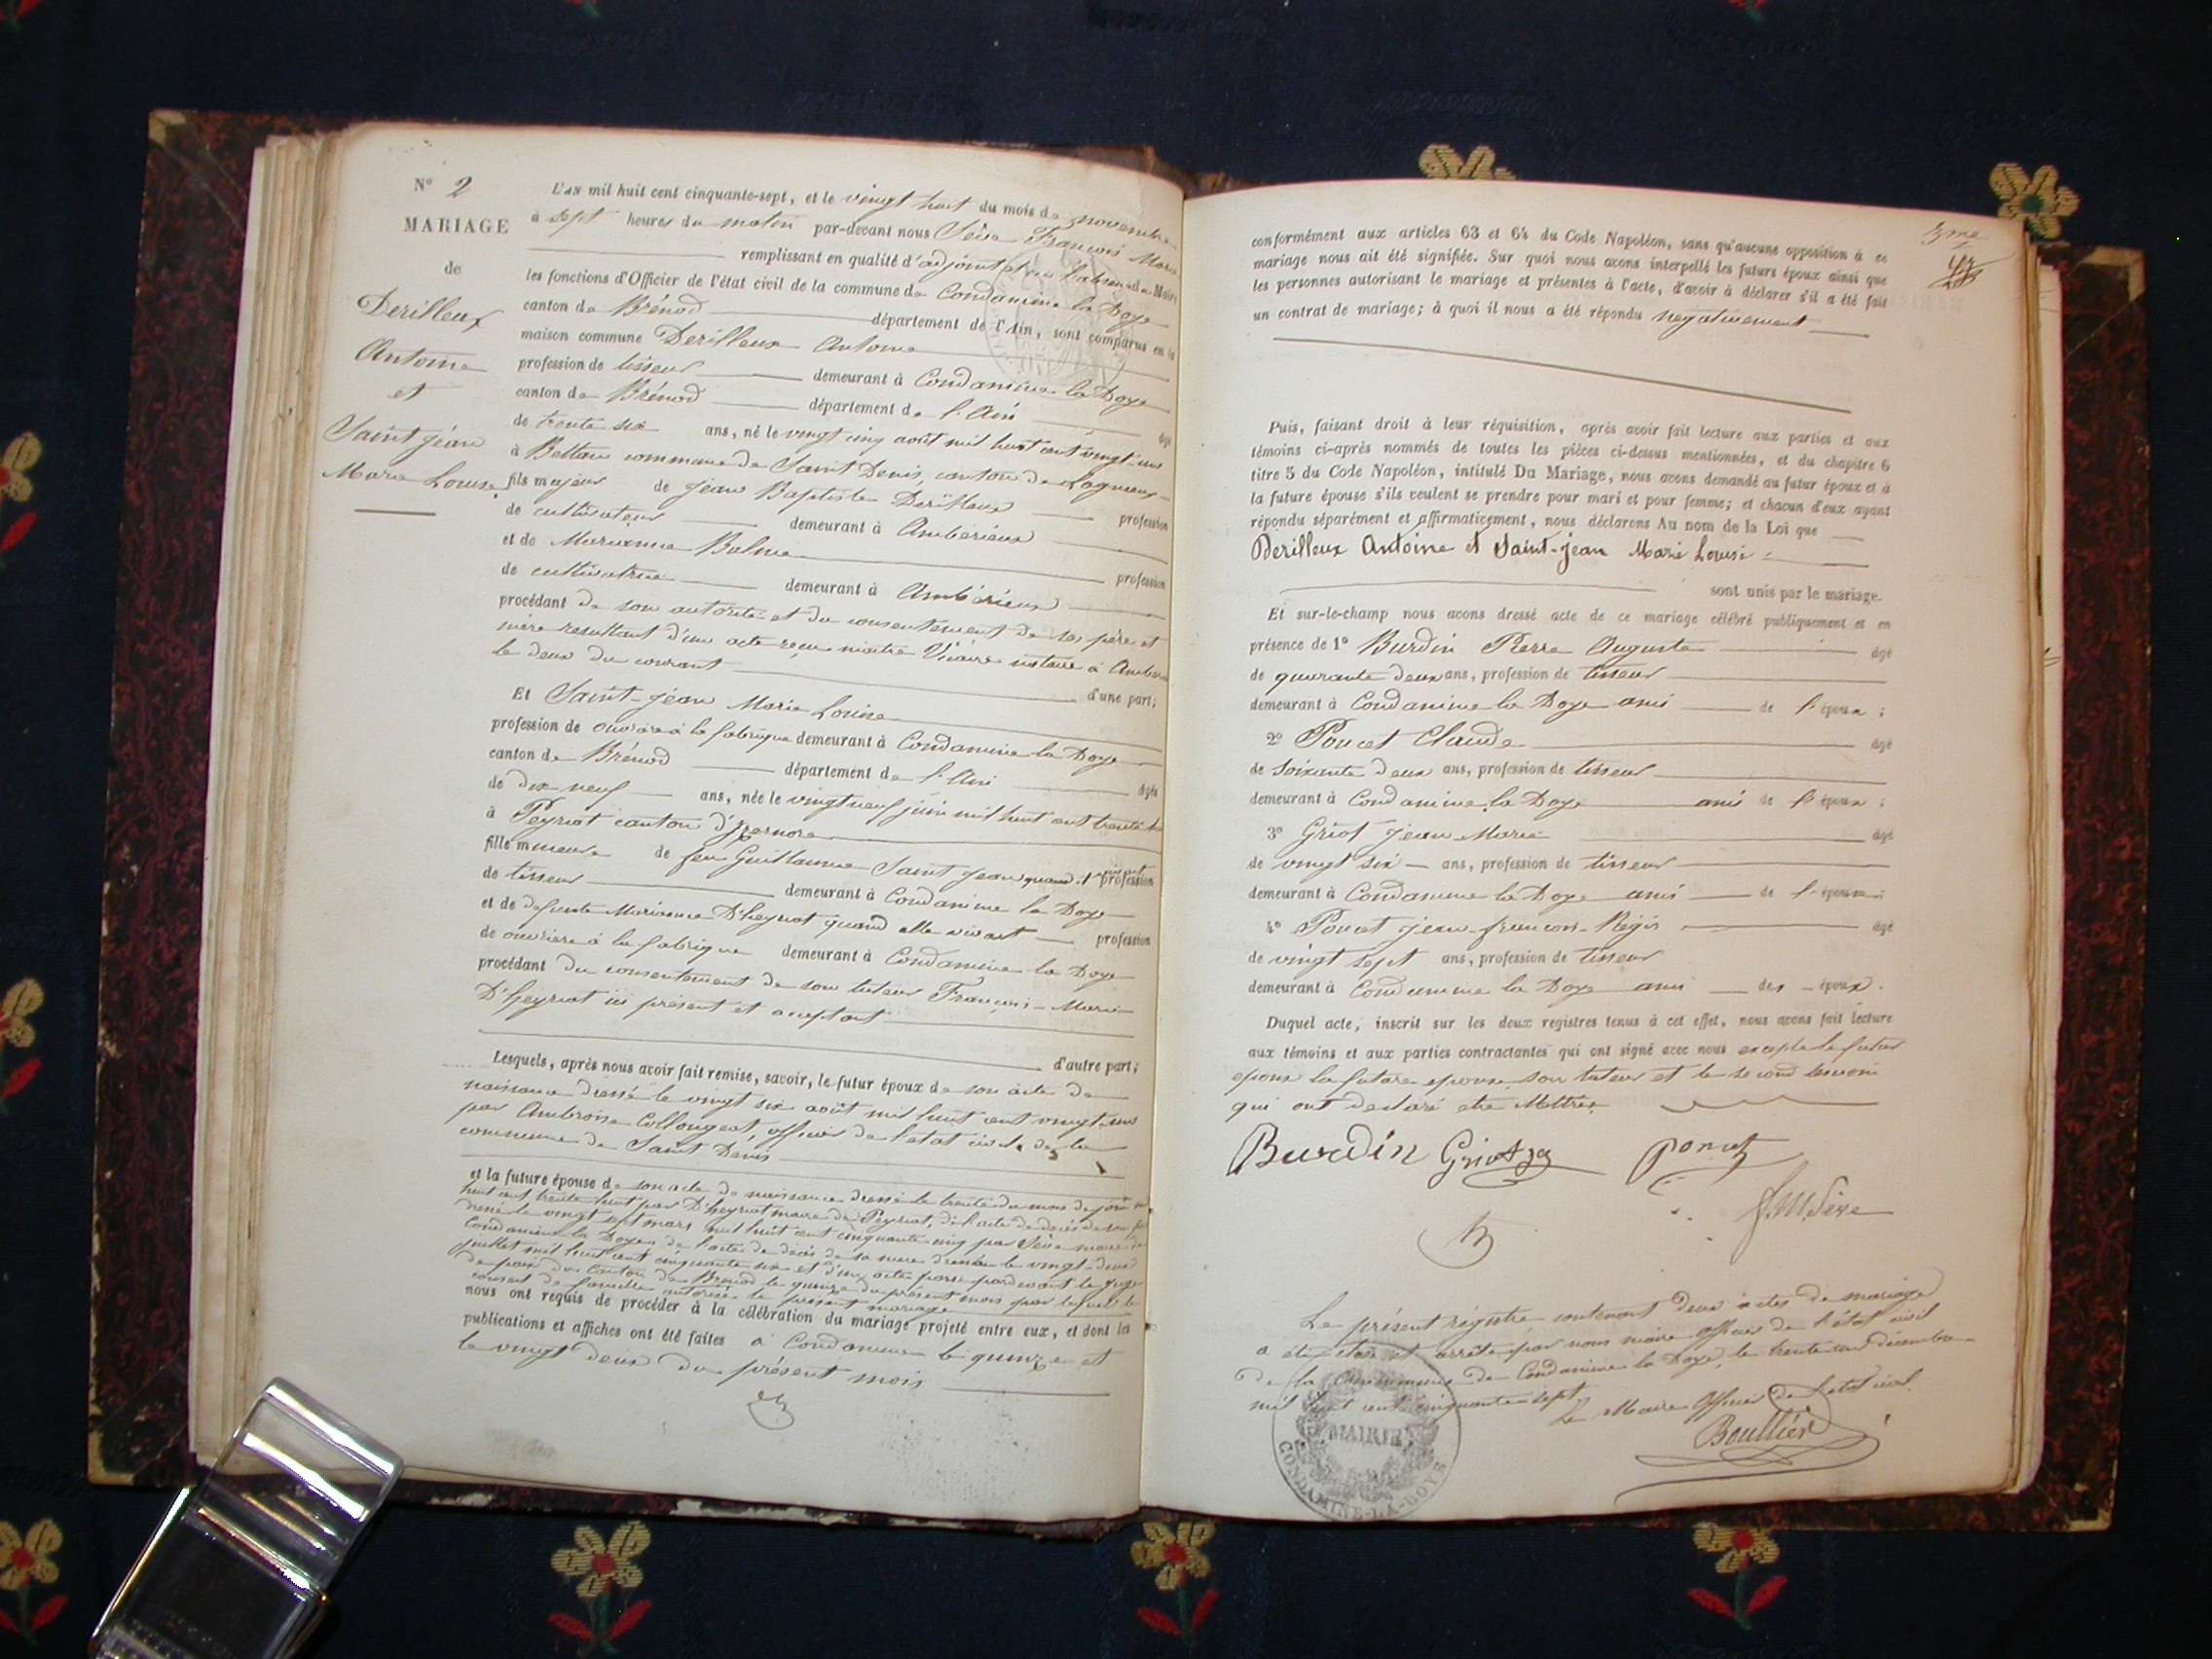 N° 2
MARIAGE
de
Derilleux
Antoine
et
Saint jean
Marie Louise
L'an mil huit cent cinquante-sept, et le vingt huit du mois de novembre
à sept heures du matin par-devant nous Sève François Marie
remplissant en qualité d'adjoint et en l'absence du Maire
les fonctions d'Officier de l'état civil de la commune de Condamine la Doye
canton de Brénod département de l'Ain, sont comparus en la
maison commune Derilleux Antoine
profession de tisseur demeurant à Condamine la Doye
canton de Brénod département de l'Ain âgé
de trente six ans, né le vingt cinq août mil huit cent vingt-un
à Bettan commune de Saint Denis, canton de Lagnieu
fils majeur de jean Baptiste Derilleux profession
de cultivateur demeurant à Ambérieux
et de Marianne Balme profession
de cultivatrice demeurant à Ambérieux
procédant de son autorité et du consentement de ses père et
mère resultant d'un acte reçu maître Vicaire notaire à
le deux du courant d'une part;
Et Saint-jean Marie Louise
profession de ouvrière à la fabrique demeurant à Condamine la Doye
canton de Brénod département de l'Ain âgée
de dix neuf ans, née le vingt neuf juin mil huit cent trente
à Peyriat canton d'Izernore
fille mineure de feu Guillaume Saint jean quand il vivait profession
de tisseur demeurant à Condamine la Doye
et de defunte Marianne D'heyriat quand elle vivait profession
de ouvrière à la fabrique demeurant à Condamine la Doye
procédant du consentement de son tuteur François-Marie
D'heyriat ici présent et acceptant
d'autre part;
Lesquels, après nous avoir fait remise, savoir, le futur époux de son acte de
naissance dressé le vingt six août mil huit cent vingt-un
par Ambroise Collongeat officier de l'état civil de la
commune de Saint Denis
et la future épouse de son acte de naissance dressé le trente du mois de juin mil
huit cent trente huit par D'heyriat maire de Peyriat, de l'acte de décès de son père
dressé le vingt sept mars mil huit cent cinquante cinq par Sève maire de
Condamine la Doye, de l'acte de décès de sa mère dressé le vingt-deux
juillet mil huit cent cinquante six et d'un acte passé pardevant le juge
de paix du canton de Brénod le quinze du présent mois par lequel le
conseil de famille autorise le présent mariage
nous ont requis de procéder à la célébration du mariage projeté entre eux, et dont les
publications et affiches ont été faites à Condamine le quinze et
le vingt deux du présent mois
conformément aux articles 63 et 64 du Code Napoléon, sans qu'aucune opposition à ce
mariage nous ait été signifiée. Sur quoi nous avons interpellé les futurs époux ainsi que
les personnes autorisant le mariage et présentes à l'acte, d'avoir à déclarer s'il a été fait
un contrat de mariage; à quoi il nous a été répondu negativement
Puis, faisant droit à leur réquisition, après avoir fait lecture aux parties et aux
témoins ci-après nommés de toutes les pièces ci-dessus mentionnées, et du chapitre 6
titre 5 du Code Napoléon, intitulé Du Mariage, nous avons demandé au futur époux et à
la future épouse s'ils veulent se prendre pour mari et pour femme; et chacun d'eux ayant
répondu séparément et affirmativement, nous déclarons Au nom de la Loi que
Derilleux Antoine et Saint-jean Marie Louise
sont unis par le mariage.
Et sur-le-champ nous avons dressé acte de ce mariage célébré publiquement et en
présence de 1° Burdin Pierre Auguste âgé
de quarante deux ans, profession de tisseur
demeurant à Condamine la Doye ami de l'époux;
2° Poncet Claude âgé
de soixante deux ans, profession de tisseur
demeurant à Condamine la Doye ami de l'époux;
3° Griot jean-Marie âgé
de vingt six ans, profession de tisseur
demeurant à Condamine la Doye ami de l'épouse;
4° Poncet jean-françois-Régis âgé
de vingt sept ans, profession de tisseur
demeurant à Condamine la Doye ami des époux.
Duquel acte, inscrit sur les deux registres tenus à cet effet, nous avons fait lecture
aux témoins et aux parties contractantes qui ont signé avec nous excepté le futur
epoux la future epouse son tuteur et le second temoin
qui ont declaré etre illettrés
Burdin Griot Poncet
f.M. Sève
Le présent régistre contenant deux actes de mariage
a été clos et arrêté par nous maire officier de l'état civil
de la commune de Condamine la Doye, le trente un décembre
mil huit cent cinquante sept
Le Maire Officier de l'état civil.
Boullier
MAIRIE
CONDAMINE-LA-DOYE